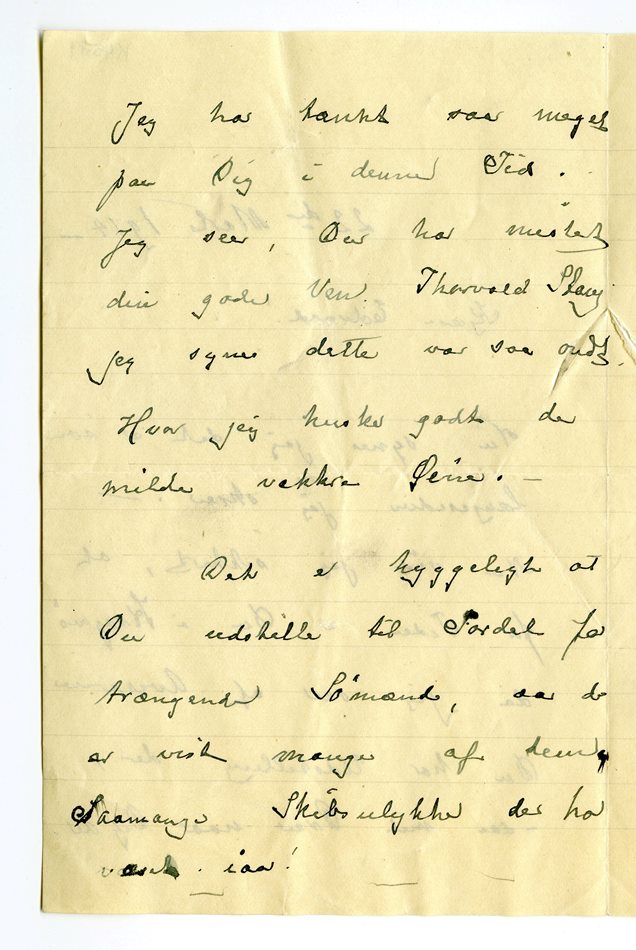 Jeg har tænkt saa meget
paa Dig i denne Tid.
Jeg seer, Du har mistet
din gode Ven Thorvald Stang
jeg synes dette var saa ondt.
Hvor jeg husker godt de
milde vakkre Øine. —
Det er hyggeligt at
Du udstille til Fordel for
trængende Sømænd, aa de
er vist mange af dem,
Saamange Skibsulykke der har
været iaar!